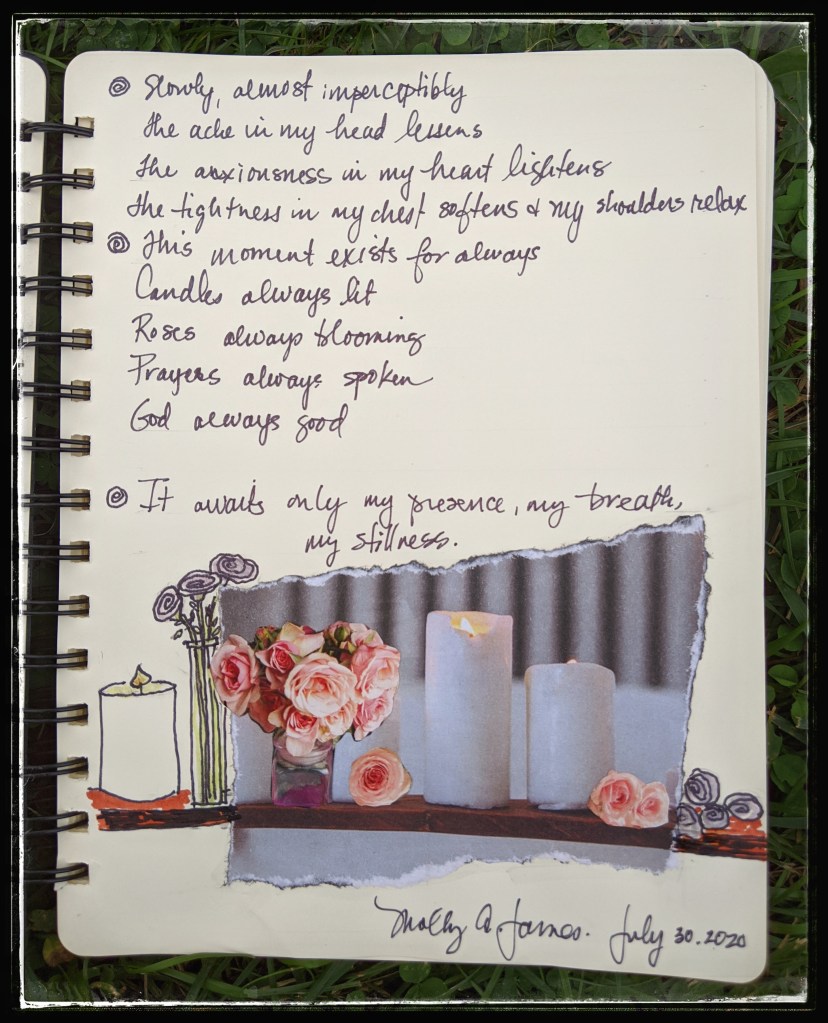 Slowly, almost imperceptibly
the ache in my head lessens
the anxiousness in my heart lightens
the tightness in my chest softens & my shoulders relax
This moment exists for always
Candles always lit
Roses always blooming
Prayers always spoken
God always good
It awaits only my presence, my breath,
my stillness.
Molly A. James. July 30. 2020